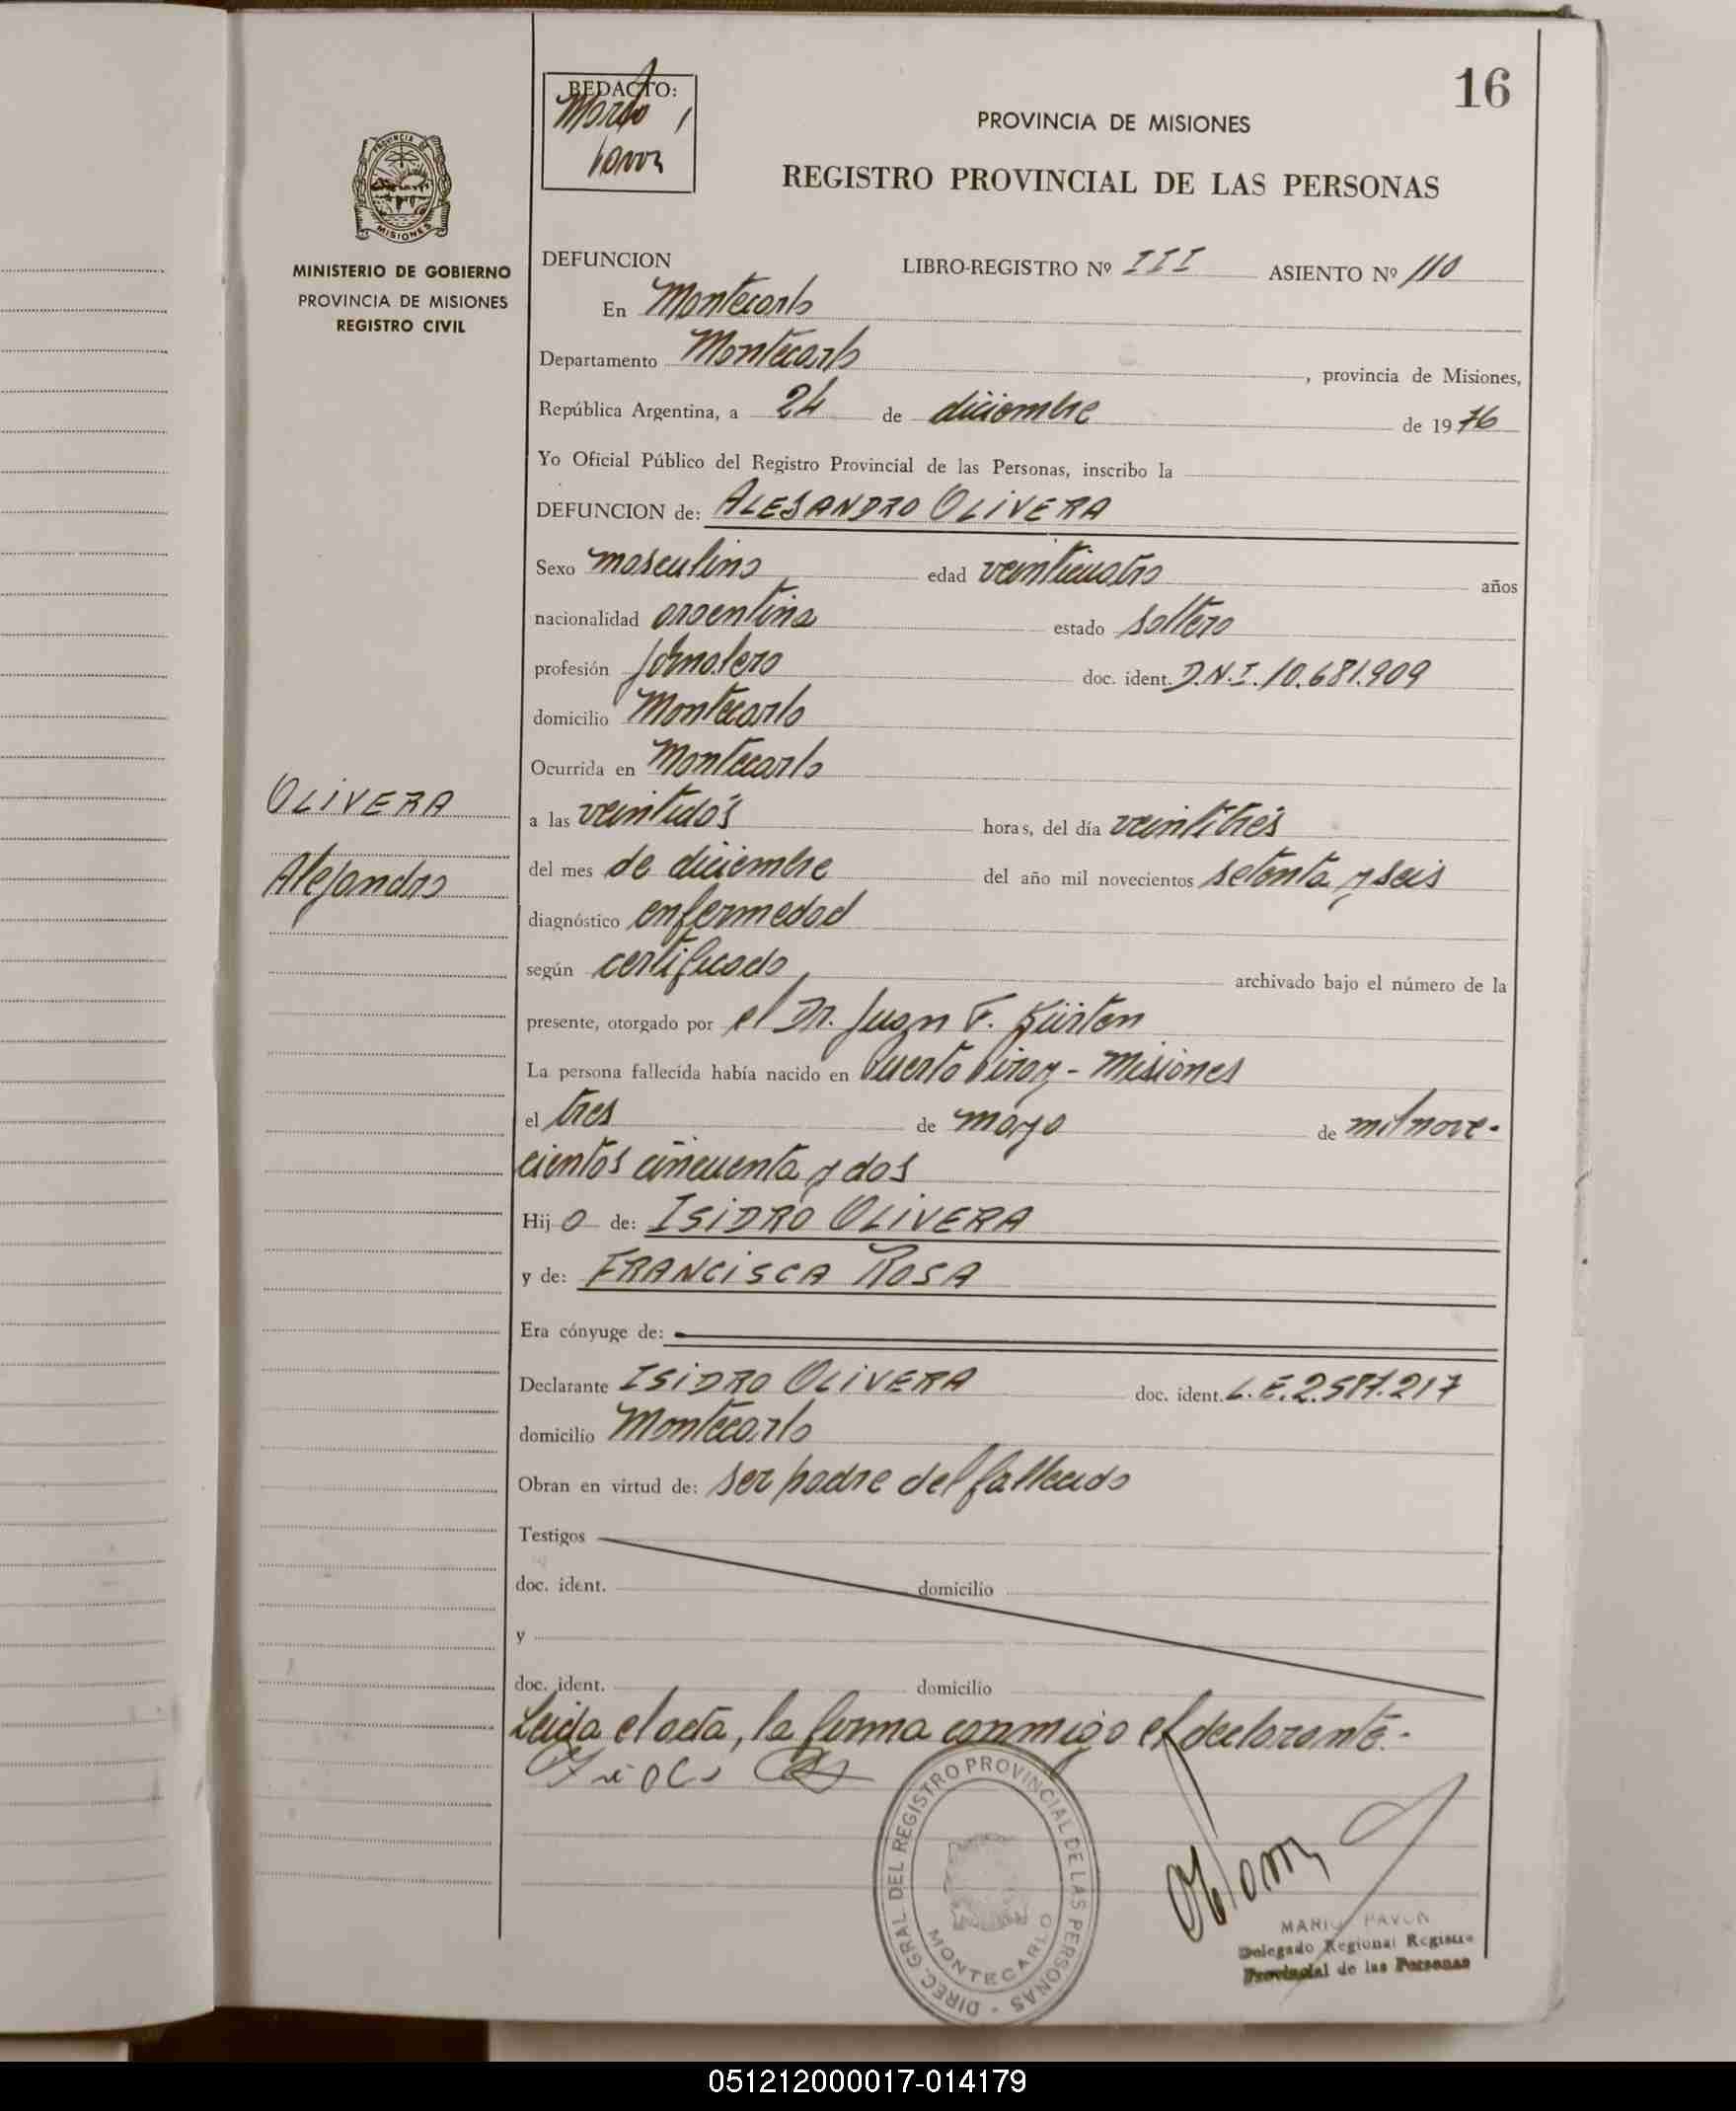 16
REDACTO:
Mario
Pavon
PROVINCIA DE MISIONES
REGISTRO PROVINCIAL DE LAS PERSONAS
PROVINCIA DE
MISIONES
MINISTERIO DE GOBIERNO
PROVINCIA DE MISIONES
REGISTRO CIVIL
DEFUNCION LIBRO-REGISTRO Nº III ASIENTO Nº 110
En Montecarlo
Departamento Montecarlo, provincia de Misiones,
República Argentina, a 24 de diciembre de 1976
Yo Oficial Público del Registro Provincial de las Personas, inscribo la
DEFUNCION de: ALEJANDRO OLIVERA
Sexo masculino edad veinticuatro años
nacionalidad argentina estado soltero
profesión jornalero doc. ident. D.N.I. 10.681.909
domicilio Montecarlo
Ocurrida en Montecarlo
OLIVERA
Alejandro
a las veintidós horas, del día veintitrés
del mes de diciembre del año mil novecientos setenta y seis
diagnóstico enfermedad
según certificado, archivado bajo el número de la
presente, otorgado por el Dr. Juan F. Kürten
La persona fallecida había nacido en Puerto Piray - Misiones
el tres de mayo de mil nove-
cientos cincuenta y dos
Hijo de: ISIDRO OLIVERA
y de: FRANCISCA ROSA
Era cónyuge de:
Declarante ISIDRO OLIVERA doc. ident. L.E. 2.581.217
domicilio Montecarlo
Obran en virtud de: ser padre del fallecido
Testigos
doc. ident. domicilio
y
doc. ident. domicilio
Leida el acta, la firma conmigo el declarante.-
DIREC. GRAL. DEL REGISTRO PROVINCIAL DE LAS PERSONAS -
MONTECARLO
MARIO PAVON
Delegado Regional Registro
Provincial de las Personas
051212000017-014179